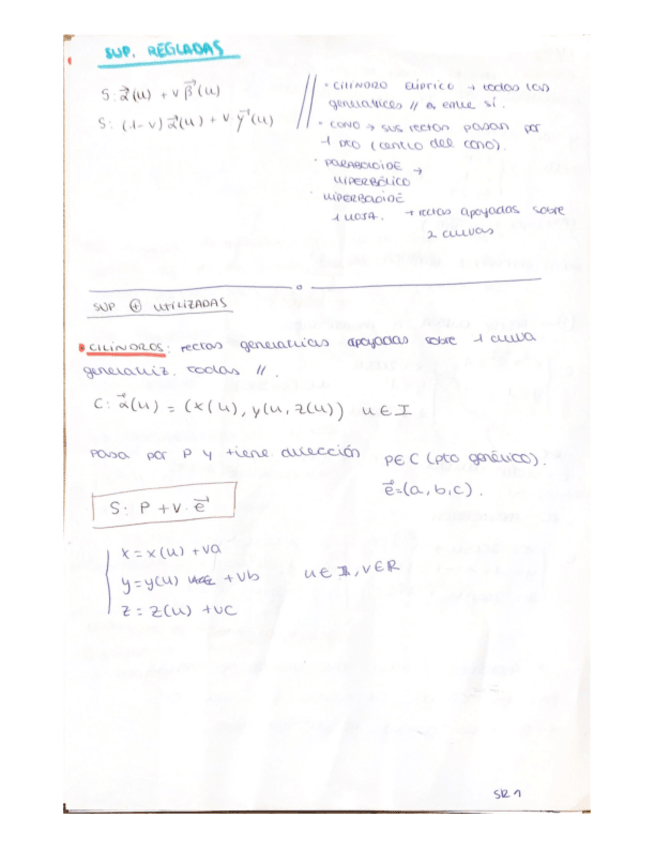 SUP. REGLADAS
S: α⃗(u) + v β⃗(u)
S: (1-v) α⃗(u) + v γ⃗(u)
· CILINDRO ELÍPTICO → todas las
generatrices // a entre sí.
· CONO → sus rectas pasan por
1 pto (centro del cono).
· PARABOLOIDE →
HIPERBÓLICO
· HIPERBOLOIDE
1 HOJA. → rectas apoyadas sobre
2 curvas
SUP ⊕ UTILIZADAS
• CILINDROS: rectas generatrices apoyadas sobre 1 curva
generatriz. todas //.
C: α⃗(u) = (x(u), y(u, z(u)) u ∈ I
Pasa por P y tiene dirección
P ∈ C (pto genérico).
e⃗=(a,b,c).
S: P + v · e⃗
x = x(u) + va
y = y(u) + vb
z = z(u) + vc
u ∈ I, v ∈ R
SR 1